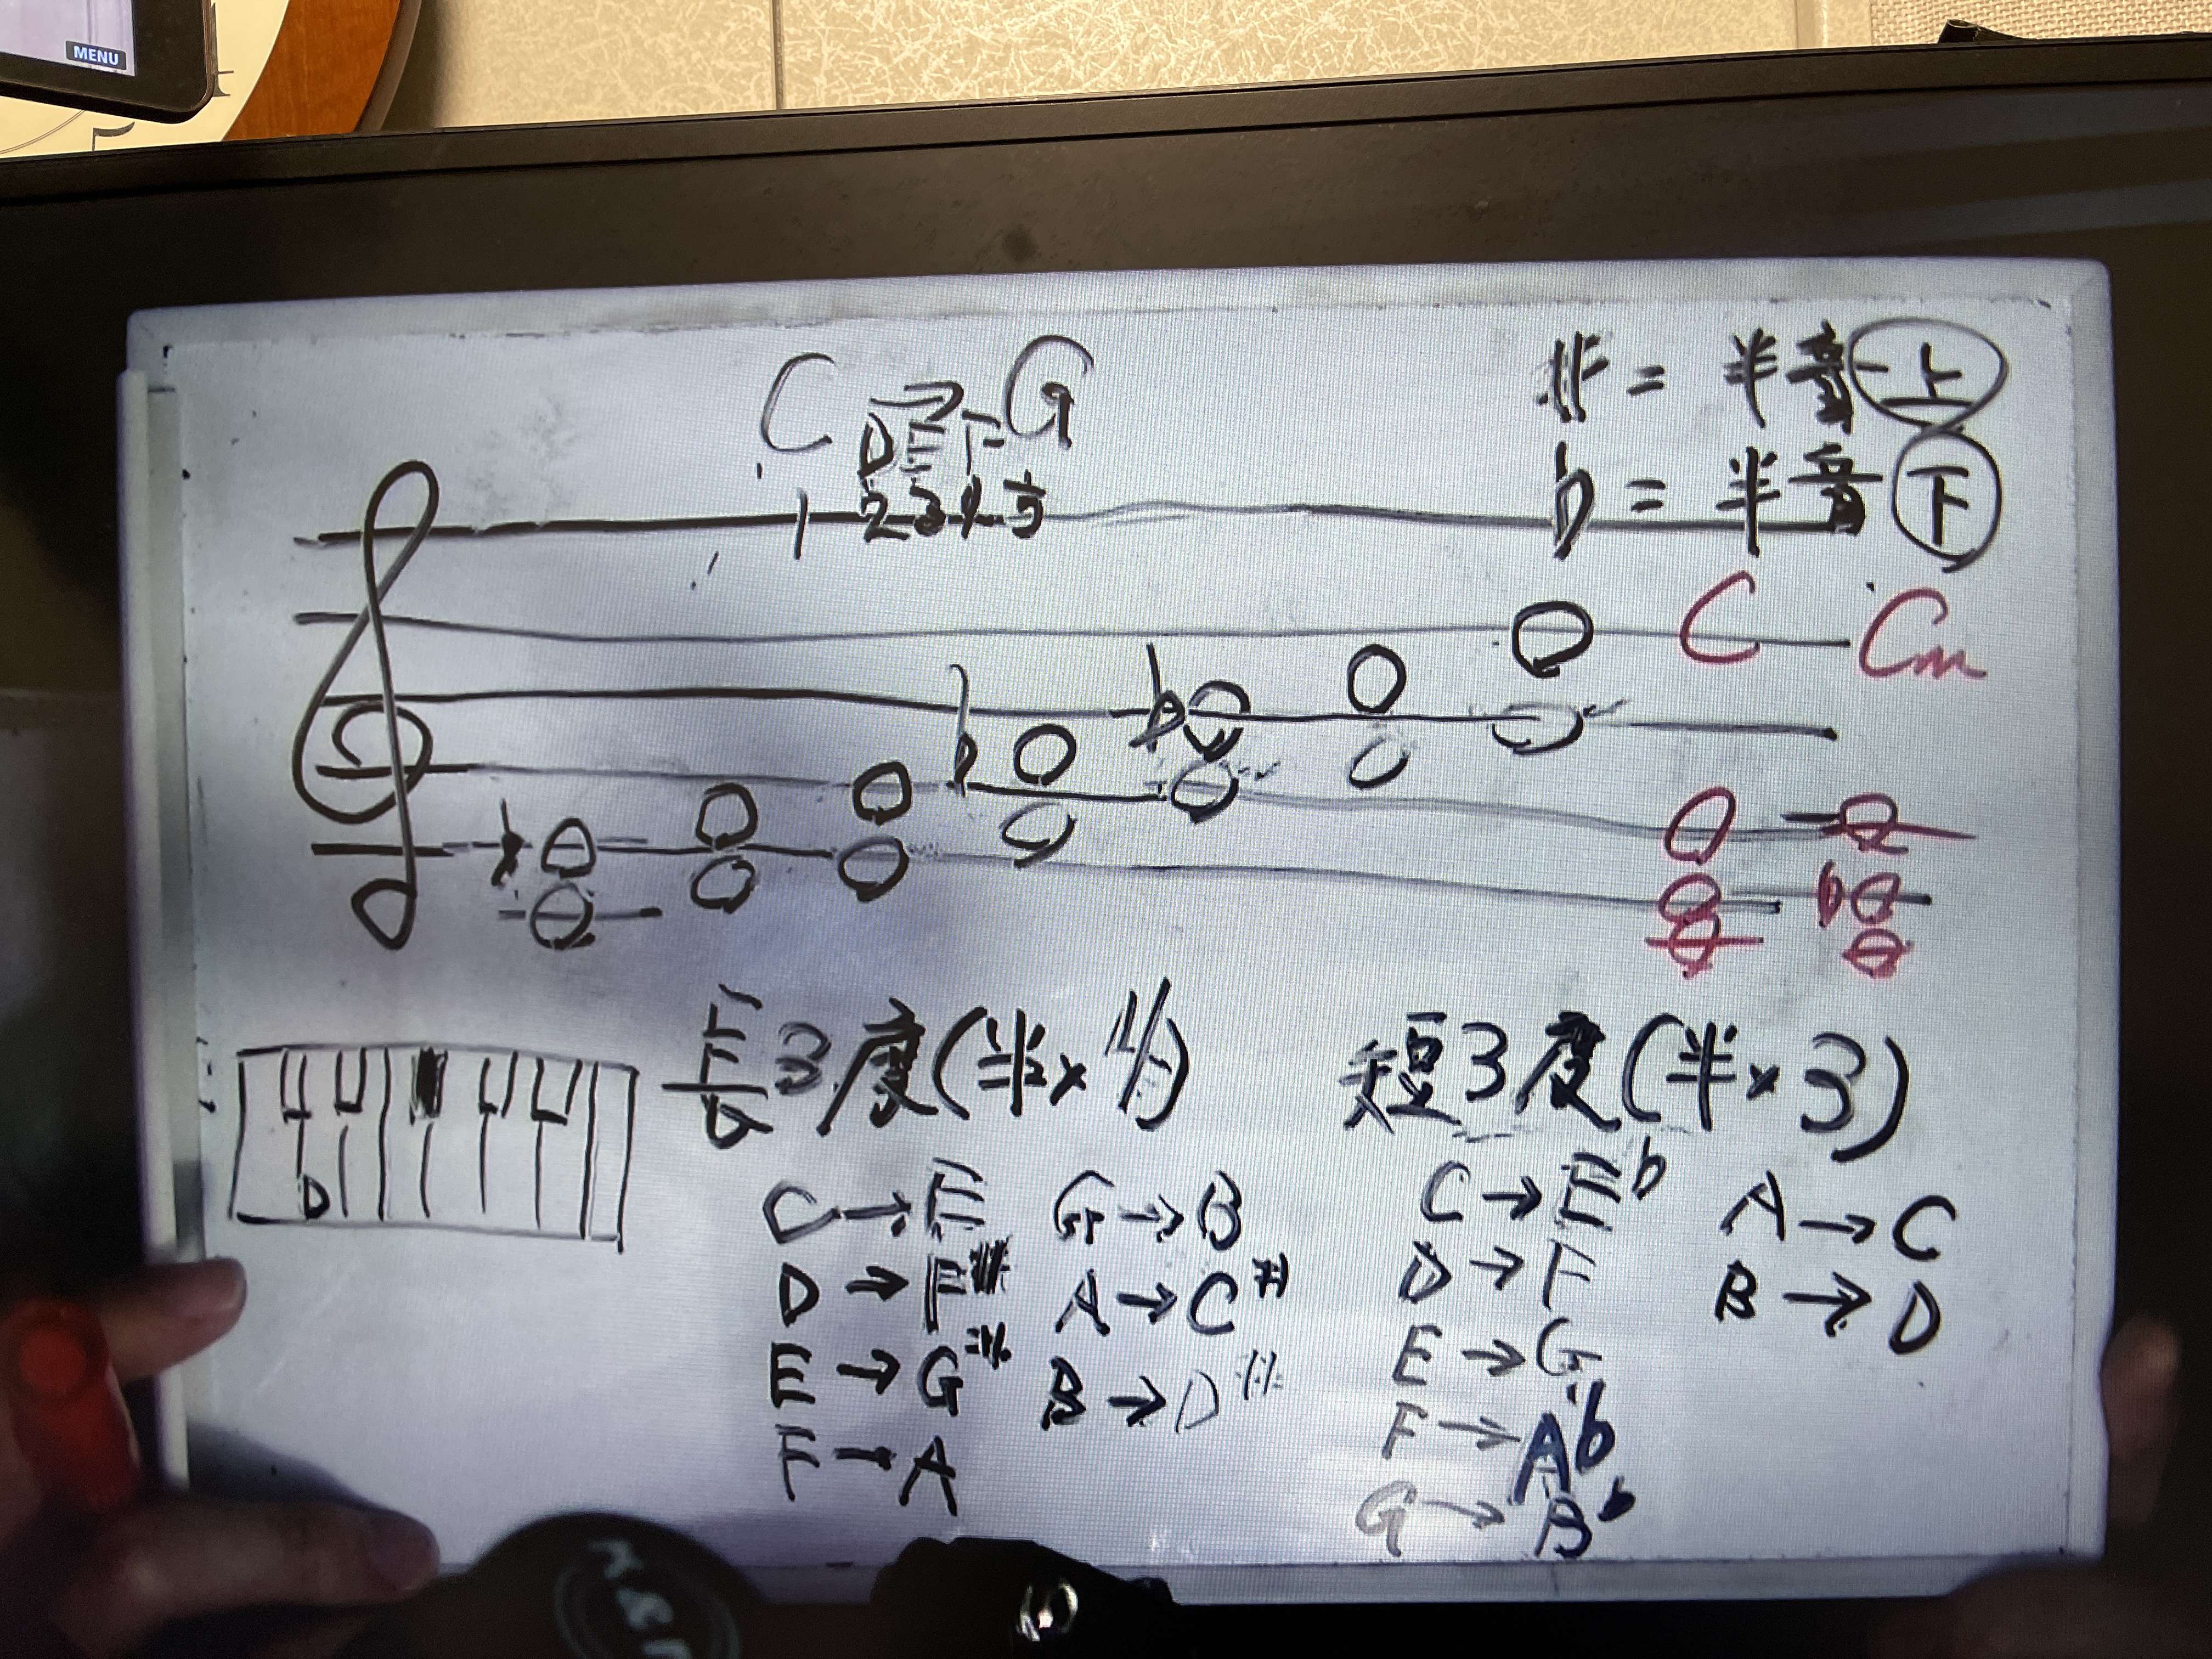 MENU
5
C → G
D E F
1 2 3 4 5
# = 半音上
b = 半音下
C Cm
b
b
b
b
D
長3度(半×4)
C → E
D → F#
E → G#
F → A
G → B
A → C#
B → D#
短3度(半×3)
C → Eb
D → F
E → G
F → Ab
G → Bb
A → C
B → D